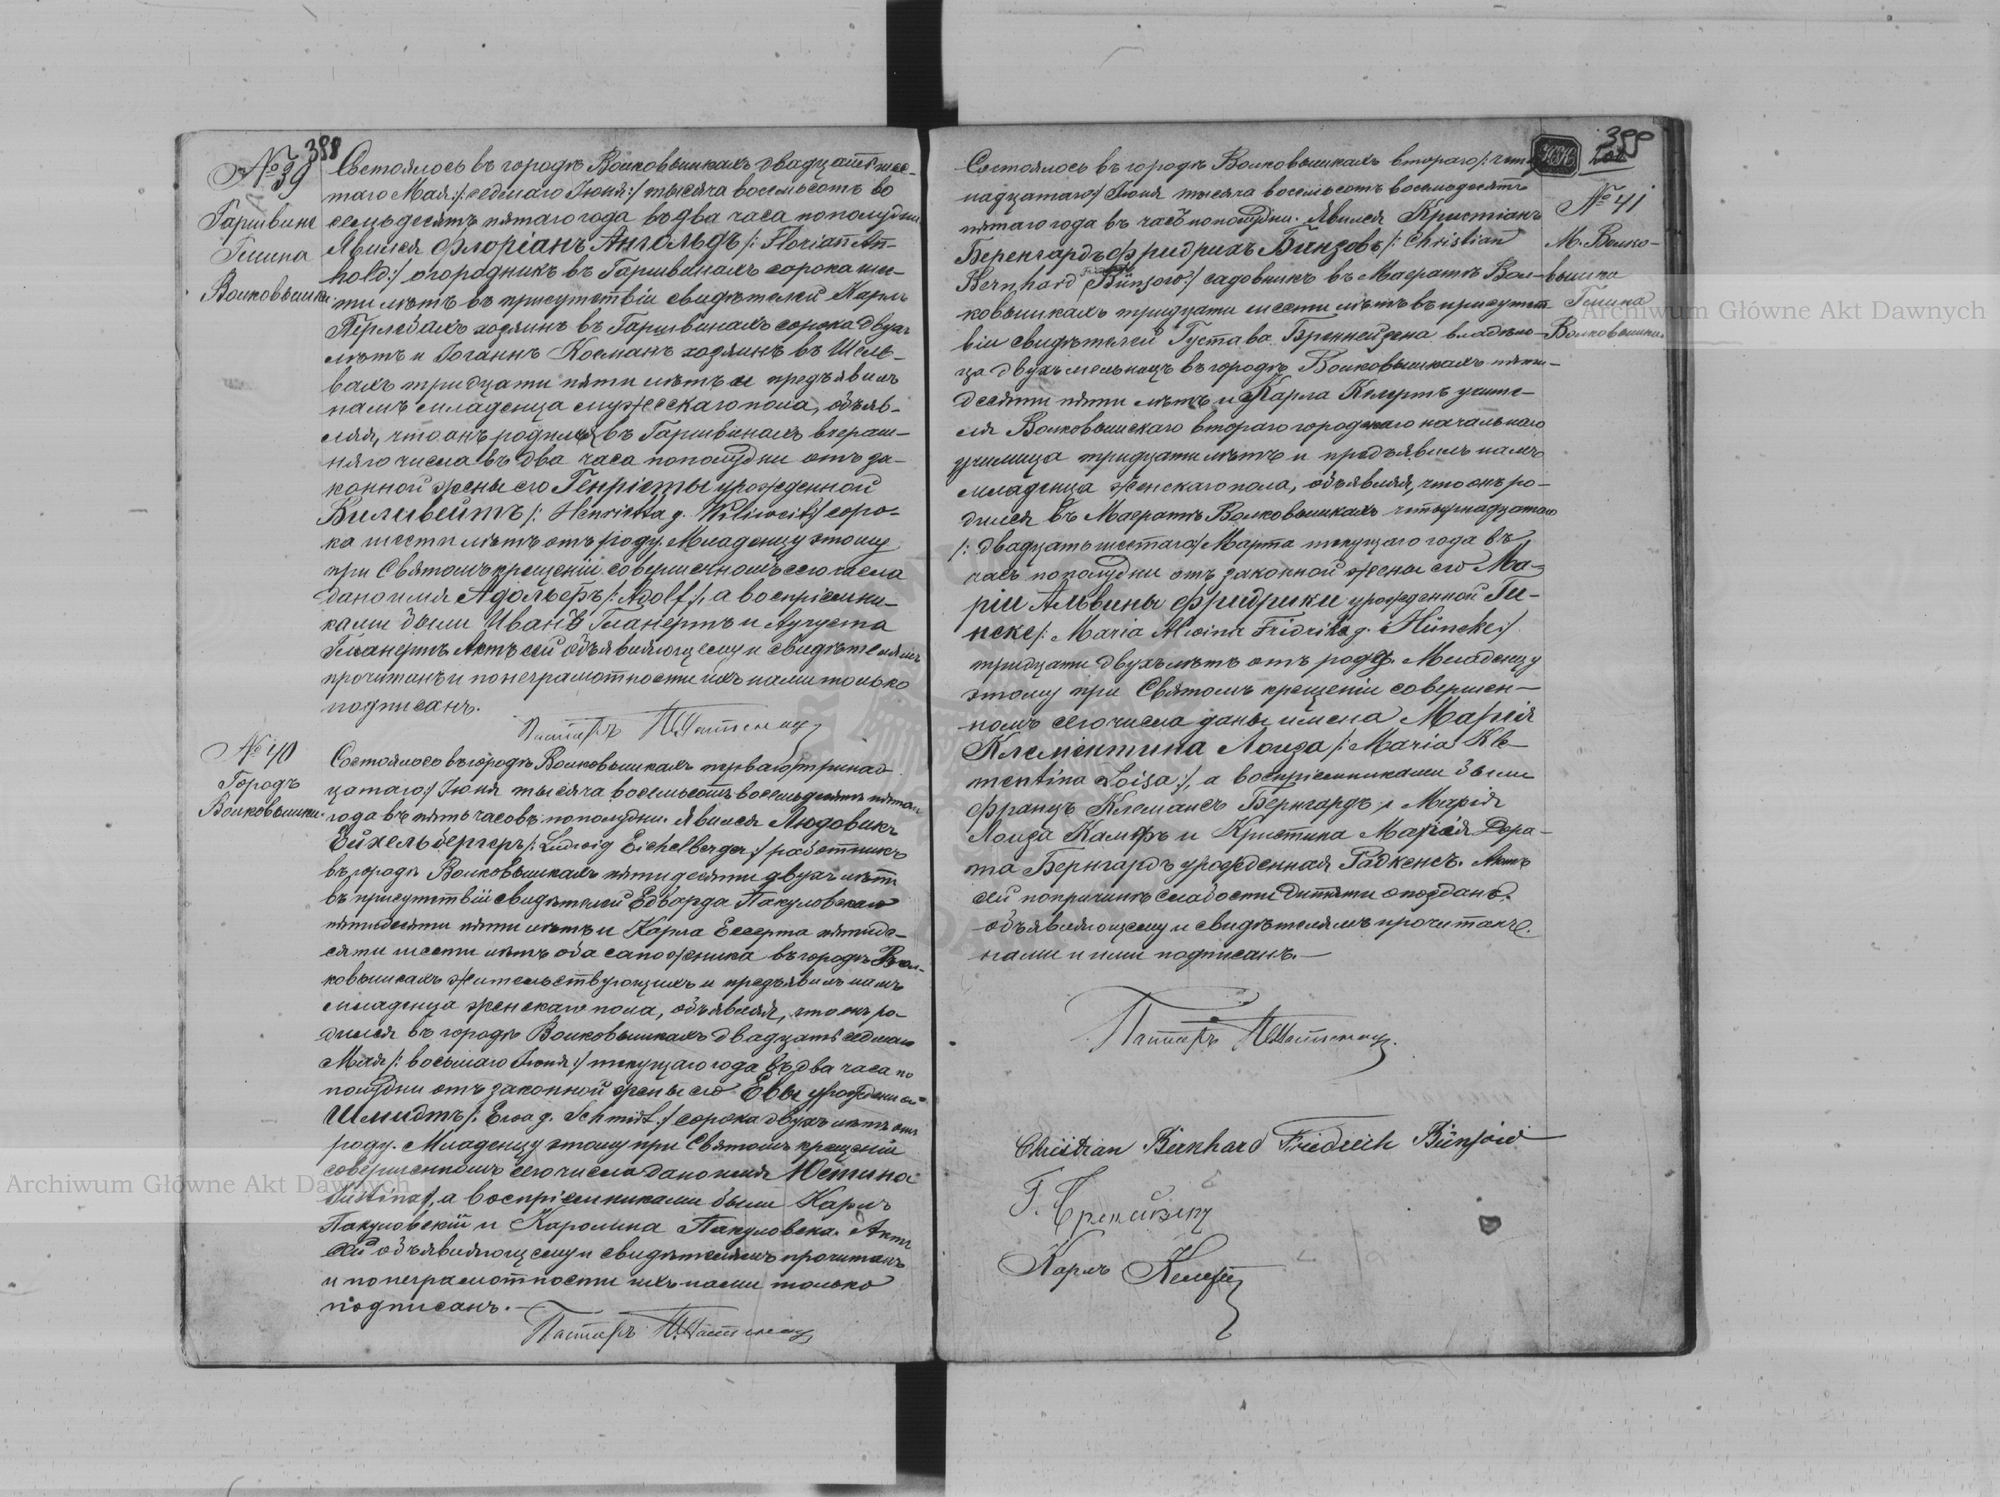 388
№ 39
Гаршвине
Гмина
Волковышки
Состоялось въ городѣ Волковышкахъ двадцать шес-
таго Мая /: седьмаго Іюня :/ тысяча восемьсотъ во
семьдесятъ пятаго года въ два часа пополудни
Явился Флоріанъ Ангольдъ /: Florian An-
hold :/ огородникъ въ Гаршвинахъ сорока ше-
сти лѣтъ въ присутствіи свидѣтелей Карлъ
Перлебахъ хозяинъ въ Гаршвинахъ сорока двухъ
лѣтъ и Іоганнъ Косманъ хозяинъ въ Шель-
вахъ тридцати пяти лѣтъ и предъявилъ
намъ младенца мужескаго пола, объяв-
ляя, что онъ родился въ Гаршвинахъ вчераш-
няго числа въ два часа пополудни отъ за-
конной жены его Генріетты урожденной
Виливейтъ /: Henrietta g. Wiliweit :/ соро-
ка шести лѣтъ отъ роду. Младенцу этому
при Святомъ крещеніи совершенномъ сего числа
дано имя Адольфъ /: Adolf :/, а воспріемни-
ками были Иванъ Гланертъ и Аугуста
Гланертъ. Актъ сей объявляющему и свидѣтелямъ
прочитанъ и по неграмотности ихъ нами только
подписанъ.
Пасторъ
№ 40
Городъ
Волковышки.
Состоялось въ городѣ Волковышкахъ перваго /: тринад
цатаго :/ Іюня тысяча восемьсотъ восемьдесятъ пятаго
года въ пять часовъ пополудни. Явился Людовикъ
Ейхельбергеръ /: Ludwig Eichelberger :/ работникъ
въ городѣ Волковышкахъ пятидесяти двухъ лѣтъ
въ присутствіи свидѣтелей Едварда Пакуловскаго
пятидесяти пяти лѣтъ и Карла Ессерта пятиде-
сяти шести лѣтъ оба сапожника въ городѣ Вол-
ковышкахъ жительствующихъ и предъявилъ намъ
младенца женскаго пола, объявляя, что онъ ро-
дился въ городѣ Волковышкахъ двадцать седьмаго
Мая /: восьмаго Іюня :/ текущаго года въ два часа по
полудни отъ законной жены его Евы урожденной
Шмидтъ /: Ewa g. Schmidt :/ сорока двухъ лѣтъ отъ
роду. Младенцу этому при Святомъ крещеніи
совершенномъ сего числа дано имя Юстина
Justina :/, а воспріемниками были Карлъ
Пакуловскій и Каролина Пакуловска. Актъ
сей объявляющему и свидѣтелямъ прочитанъ
и по неграмотности ихъ нами только
подписанъ. —
Пасторъ
399
№ 41
М. Волко-
вышки
Гмина
Волковышки.
Состоялось въ городѣ Волковышкахъ втораго /: четыр
надцатаго :/ Іюня тысяча восемьсотъ восемьдесятъ
пятаго года въ часъ пополудни. Явился Кристіанъ
Беренгардъ Фридрихъ Бинзовъ /: Christian
Bernhard Bünsow :/ садовникъ въ Маератѣ Вол-
ковышкахъ тридцати шести лѣтъ въ присутст
віи свидѣтелей Густава Бреннейзена владѣль-
ца двухъ мельницъ въ городѣ Волковышкахъ пяти-
десяти пяти лѣтъ и Карла Клертъ учите-
ля Волковышскаго втораго городскаго начальнаго
училища тридцати лѣтъ и предъявилъ намъ
младенца женскаго пола, объявляя, что онъ ро-
дился въ Маератѣ Волковышкахъ четырнадцатаго
/: двадцать шестаго :/ Марта текущаго года въ
часъ пополудни отъ законной жены его Ма-
ріи Альвины Фридрики урожденной Ги-
неке /: Maria Alwina Fridrika g. Hüncke :/
тридцати двухъ лѣтъ отъ роду. Младенцу
этому при Святомъ крещеніи совершен-
номъ сего числа даны имена Марія
Клементина Лоиза /: Maria Kle-
mentina Loisa :/, а воспріемниками были
Францъ Клемансъ Бернгардъ, Марія
Лоиза Кампфъ и Кристина Марія Доро-
та Бернгардъ урожденная Радкенсъ. Актъ
сей по причинѣ слабости дитяти опозданъ.
объявляющему и свидѣтелямъ прочитанъ.
нами и ими подписанъ. —
Пасторъ
Christian Bernhard Friedrich Bünsow
Г. Бренейзенъ
Карлъ
Archiwum Główne Akt Dawnych
Archiwum Główne Akt Dawnych